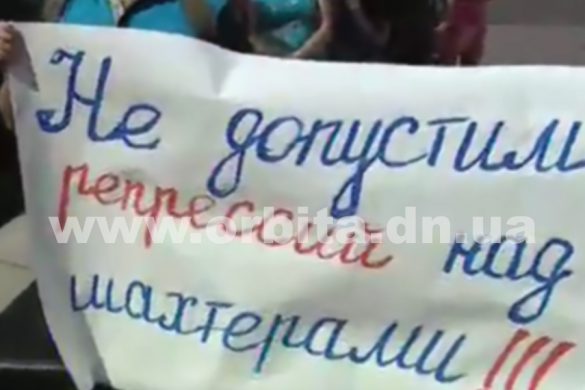 Не допустим
репрессий над
шахтерами!!!
www.orbita.dn.ua